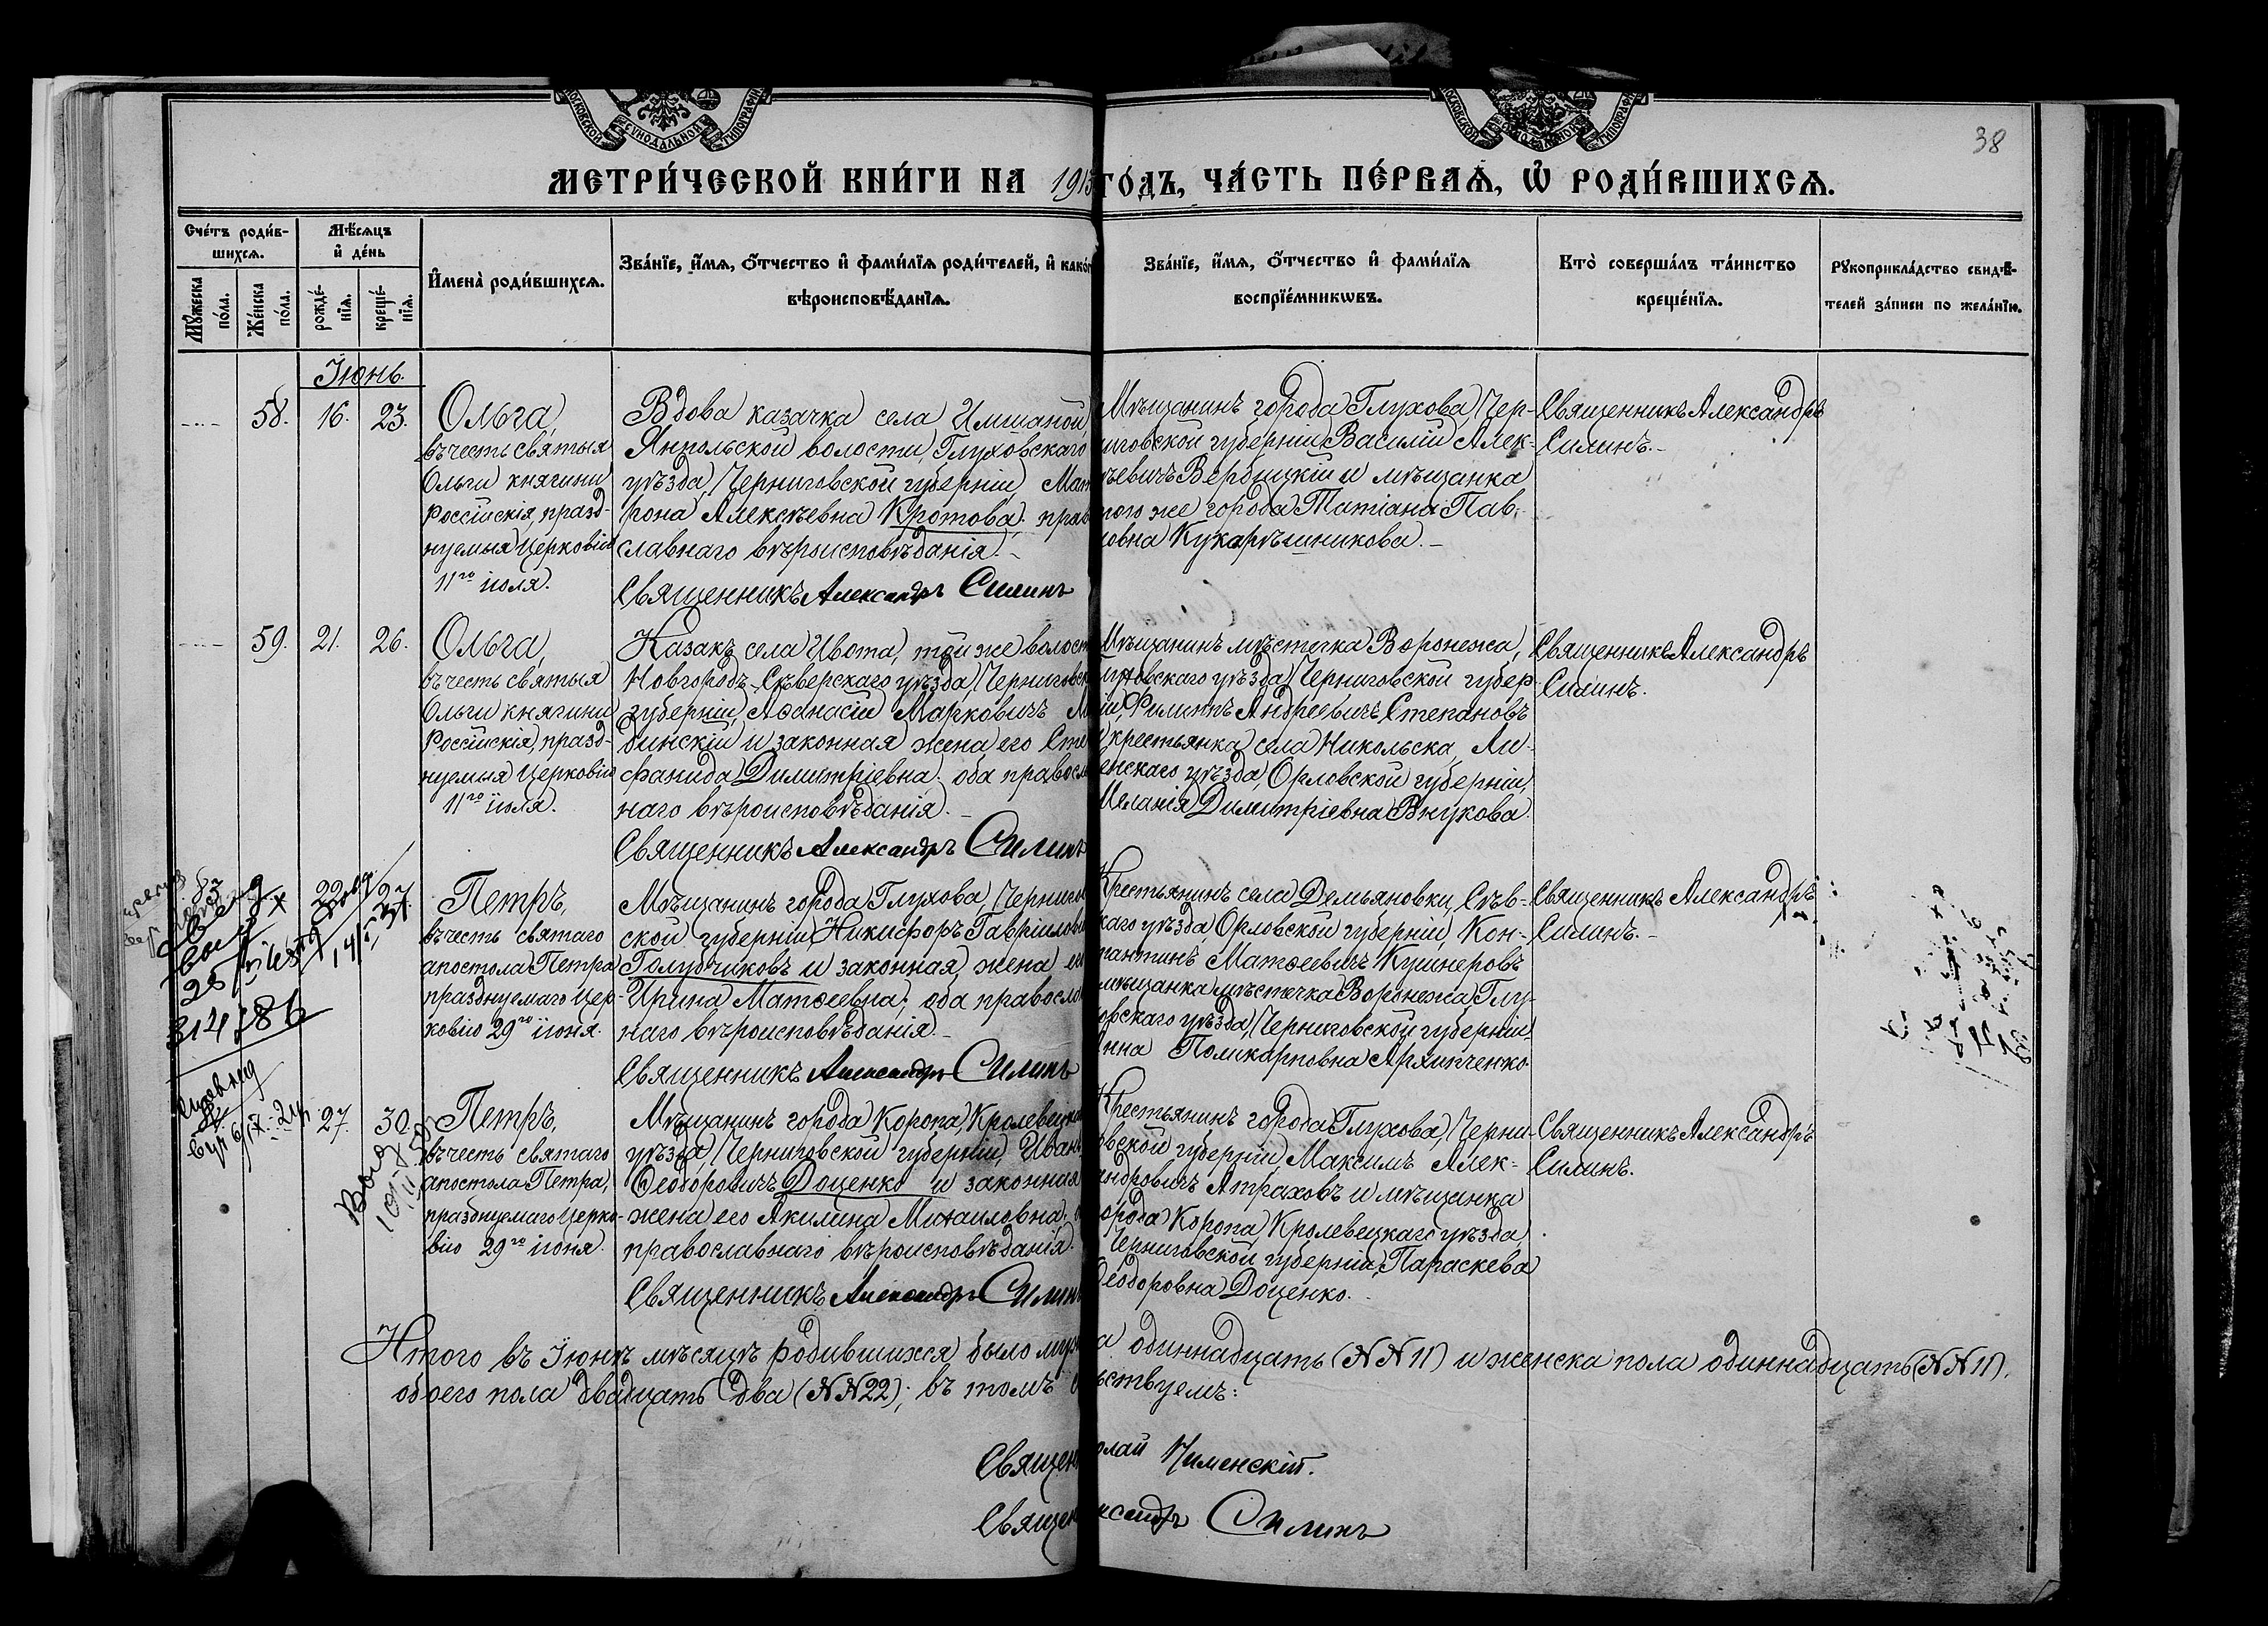 38
МЕТРИ́ЧЕСКОЙ КНИ́ГИ НА 1913 ГО́ДЪ, ЧА́СТЬ ПЕ́РВАѦ, Ѡ҆ РОДИ́ВШИХСѦ.
Сче́тъ роди́в-
шихсѧ.
Мꙋ́жеска по́ла.
Же́нска по́ла.
Мѣ́сѧцъ
и҆ де́нь
рожде́-
нїѧ.
креще́-
нїѧ.
И҆мена̀ роди́вшихсѧ.
Зва́нїе, и҆́мѧ, ѻ҆́тчество и҆ фами́лїѧ роди́телей, и҆ како́
вѣроисповѣ́данїѧ.
Зва́нїе, и҆́мѧ, ѻ҆́тчество и҆ фами́лїѧ
воспрїе́мникѡвъ.
Кто̀ соверша́лъ та́инство
креще́нїѧ.
Рꙋкоприкла́дство свидѣ́-
телей за́писи по жела́нїю.
Іюнь.
58. 16. 23.
Ольга,
въ честь святыя
Ольги княгини
Россійскія, празд-
нуемыя Церковію
11го іюля.
Вдова казачка села Имшаной
Янпольской волости, Глуховскаго
уѣзда, Черниговской губерніи, Мат
рона Алексѣевна Кротова, прав
славнаго вѣроисповѣданія.
Священникъ Александръ Силинъ
Мѣщанинъ города Глухова, Чер-
ниговской губерніи Василій Алек-
ѣевичъ Вербицкій и мѣщанка
того же города Татіана Пав-
ловна Кукарѣшникова.
Священникъ Александръ
Силинъ.
59. 21. 26.
Ольга,
въ честь святыя
Ольги княгини
Россійскія, празд-
нуемыя Церковію
11го іюля.
Казакъ села Ивота, той же волост
Новгородъ-Сѣверскаго уѣзда, Черниговск
губерніи, Аѳанасій Марковичъ
бинскій и законная жена его Сте
фанида Димитріевна, оба правосл
наго вѣроисповѣданія.
Священникъ Александръ Силинъ
Мѣщанинъ мѣстечка Воронежа,
луховскаго уѣзда, Черниговской губер-
іи, Филиппъ Андреевичъ Степановъ
и крестьянка села Никольска, Ли-
енскаго уѣзда, Орловской губерніи,
Меланія Димитріевна Внукова.
Священникъ Александръ
Силинъ.
22. 27.
Петръ,
въ честь святаго
апостола Петра
празднуемаго Цер-
ковію 29го іюня.
Мѣщанинъ города Глухова, Чернигов
ской губерніи, Никифоръ Гавріилови
Голубчиковъ и законная жена его
Ирина Матѳеевна; оба правосла
наго вѣроисповѣданія.
Священникъ Александръ Силинъ
Крестьянинъ села Демьяновки, Сѣв-
скаго уѣзда, Орловской губерніи, Кон-
тантинъ Матѳеевичъ Кушнеровъ
мѣщанка мѣстечка Воронежа Глу-
овскаго уѣзда, Черниговской губерніи
Анна Поликарповна Архипченко.
Священникъ Александръ
Силинъ.
314286
27. 30.
Петръ,
въ честь святаго
апостола Петра,
празднуемаго Церко-
вію 29го іюня.
Мѣщанинъ города Коропа, Кролевецка
уѣзда, Черниговской губерніи, Иванъ
Ѳеодоровичъ Доценко и законная
жена его Акилина Михаиловна,
православнаго вѣроисповѣданія.
Священникъ Александръ Силинъ
Крестьянинъ города Глухова, Черни-
овской губерніи, Максимъ Алек-
андровичъ Атраховъ и мѣщанка
орода Коропа, Кролевецкаго уѣзда,
Черниговской губерніи, Параскева
Ѳеодоровна Доценко.
Священникъ Александръ
Силинъ.
Итого въ Іюнѣ мѣсяцѣ родившихся было муж а одиннадцать (NN 11) и женска пола одиннадцать (NN 11),
обоего пола двадцать два (NN 22); въ томъ ьствуемъ:
Священ олай Пименскій.
Священ ксандръ Силинъ